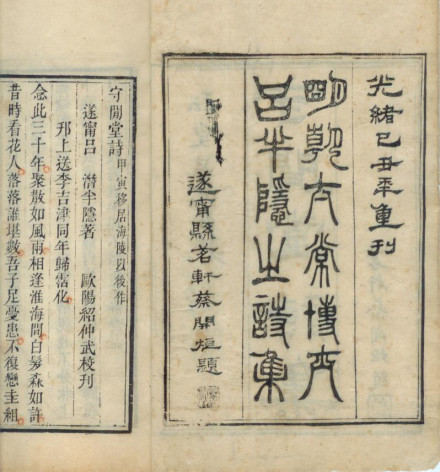 光緒己丑年重刊
明朝太常博士
呂半隱之詩集
遂甯縣茗軒蔡開題
守閒堂詩 甲寅移居海陵以後作
遂甯呂 潛半隱著 歐陽紹仲武校刊
邗上送李吉津同年歸霑化
念此三十年聚散如風雨相逢淮海間白髮森如許
昔時看花人落落誰堪數吾子足憂患不復戀圭組